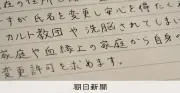 すが氏名を変更し安心を得たく
カルト教団や洗脳されてしまい
家庭や血縁上の家庭から自身の
変更許可を求めます。
朝日新聞